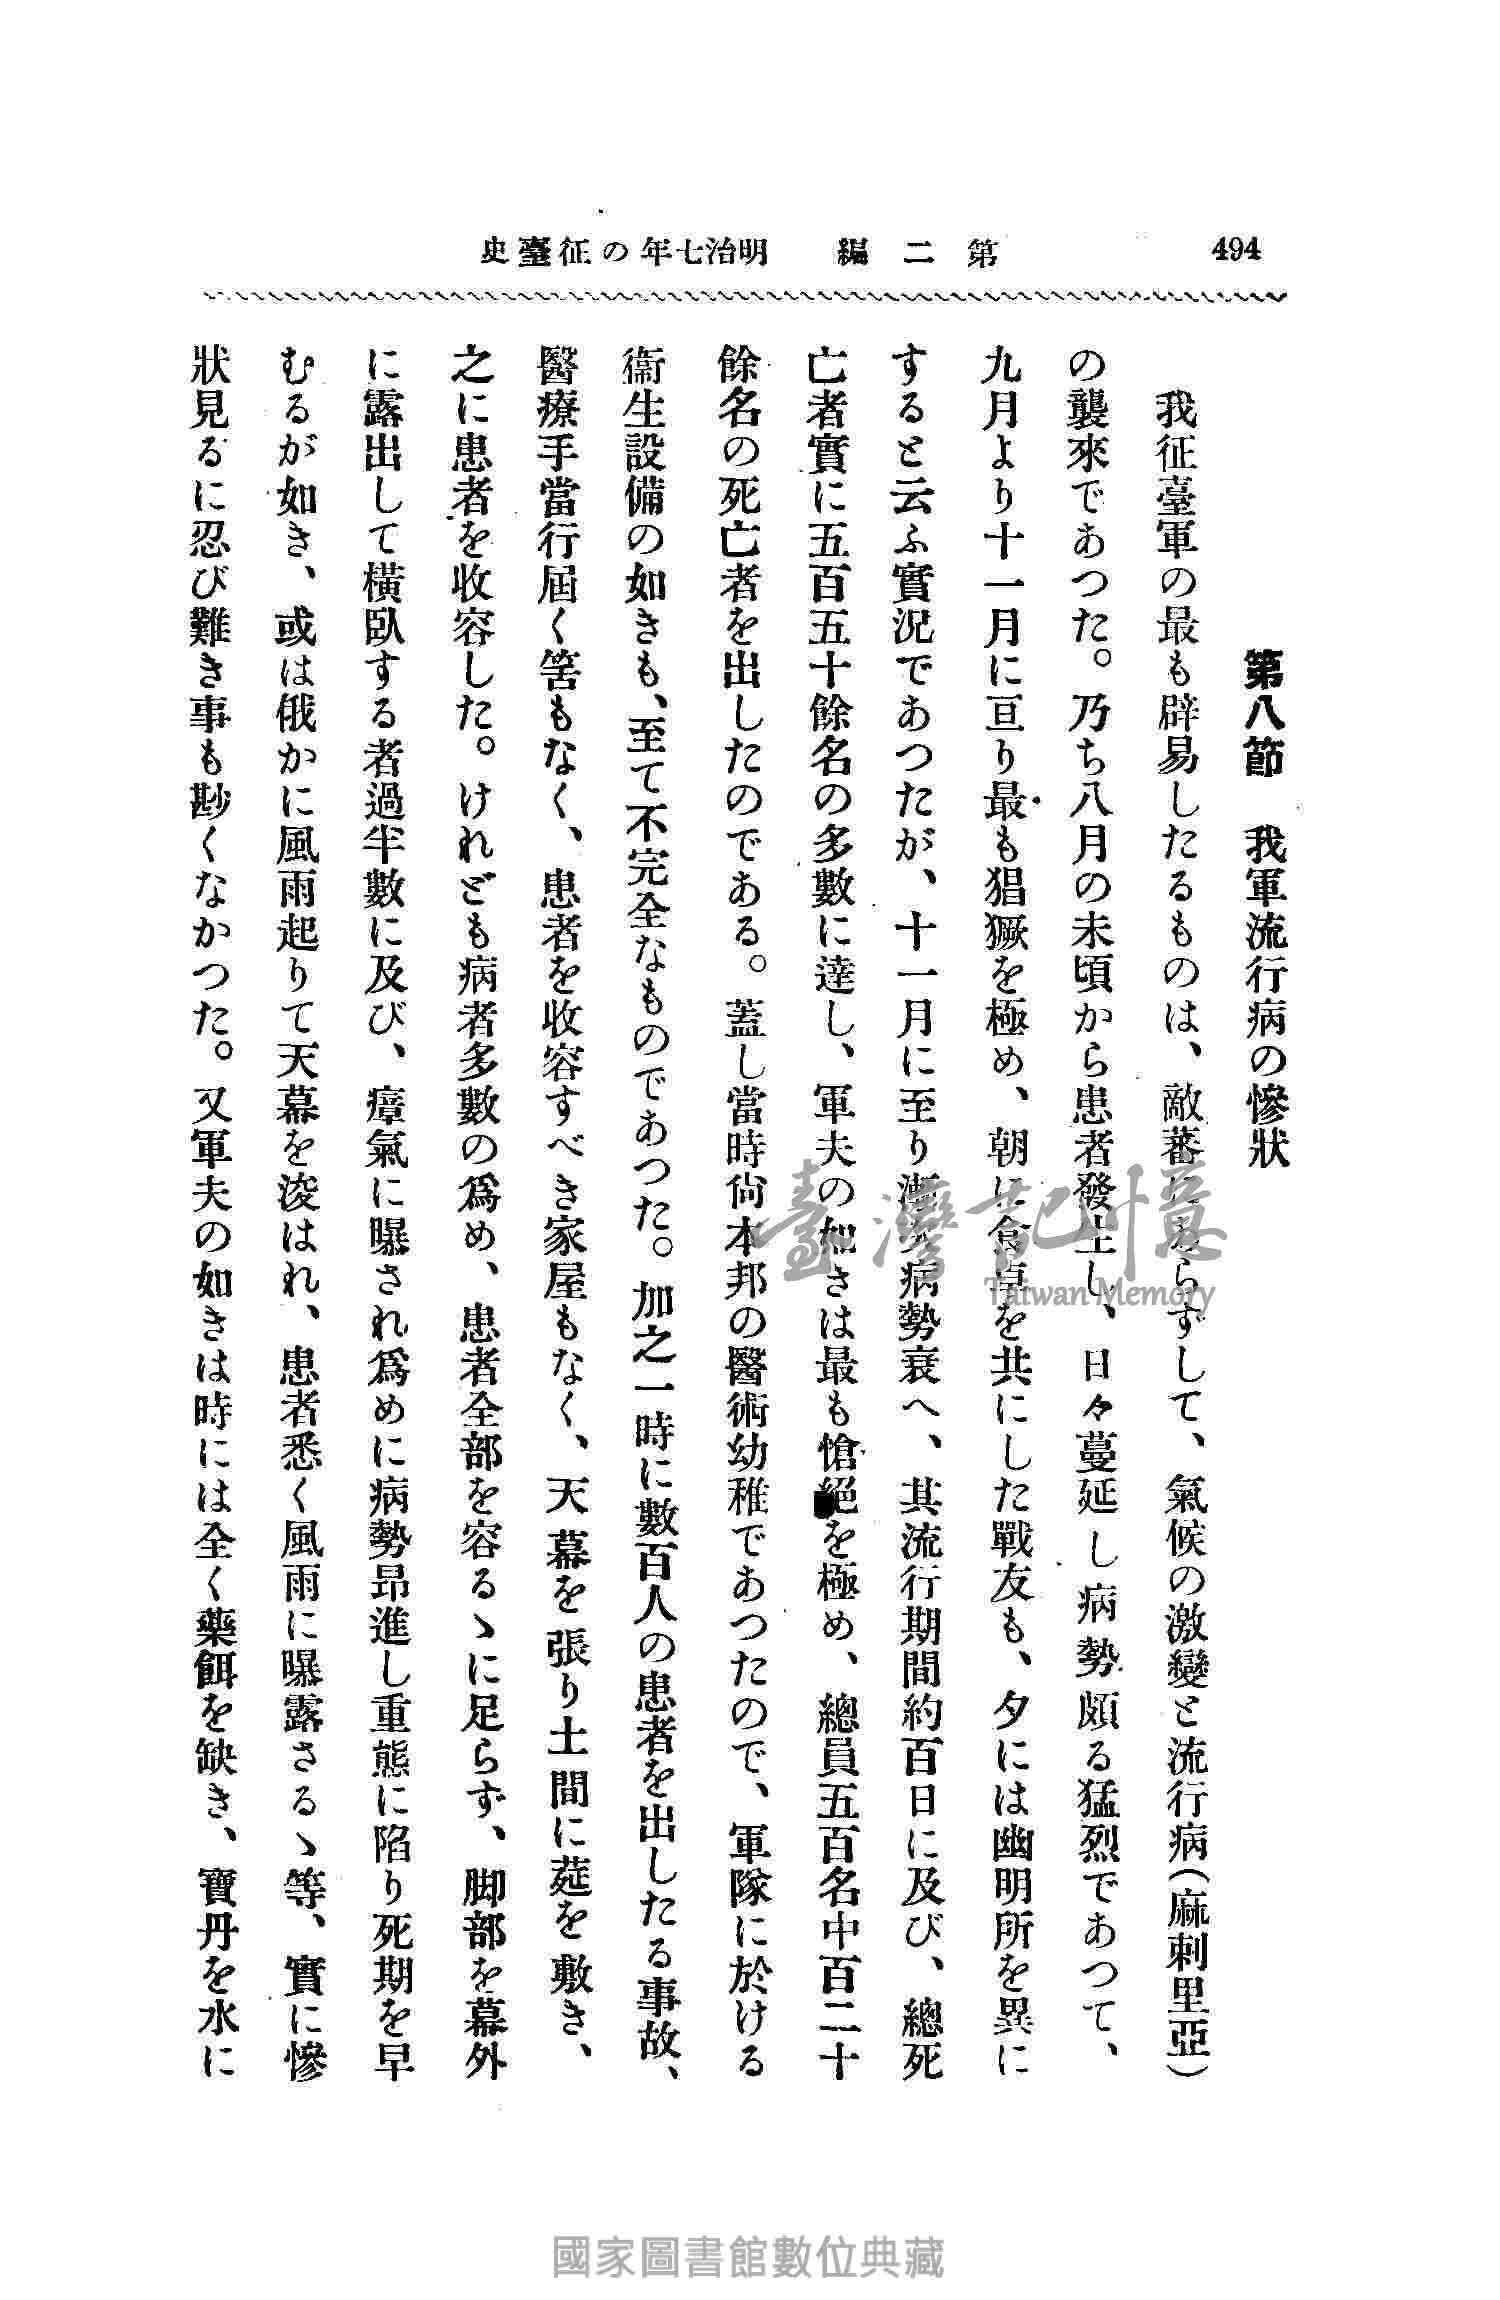 494
第二編 明治七年の征臺史
第八節 我軍流行病の慘狀
我征臺軍の最も辟易したるものは、敵蕃にあらずして、氣候の激變と流行病(麻刺里亞)
の襲來であつた。乃ち八月の末頃から患者發生し、日々蔓延し病勢頗る猛烈であつて、
九月より十一月に亘り最も猖獗を極め、朝に食卓を共にした戰友も、夕には幽明所を異に
すると云ふ實況であつたが、十一月に至り漸次病勢衰へ、其流行期間約百日に及び、總死
亡者實に五百五十餘名の多數に達し、軍夫の如きは最も愴絕を極め、總員五百名中百二十
餘名の死亡者を出したのである。蓋し當時尙本邦の醫術幼稚であつたので、軍隊に於ける
衞生設備の如きも、至て不完全なものであつた。加之一時に數百人の患者を出したる事故、
醫療手當行屆く筈もなく、患者を收容すべき家屋もなく、天幕を張り土間に莚を敷き、
之に患者を收容した。けれども病者多數の爲め、患者全部を容るゝに足らず、脚部を幕外
に露出して橫臥する者過半數に及び、瘴氣に曝され爲めに病勢昂進し重態に陷り死期を早
むるが如き、或は俄かに風雨起りて天幕を浚はれ、患者悉く風雨に曝露さるゝ等、實に慘
狀見るに忍び難き事も尠くなかつた。又軍夫の如きは時には全く藥餌を缺き、寶丹を水に
臺灣記憶
Taiwan Memory
國家圖書館數位典藏